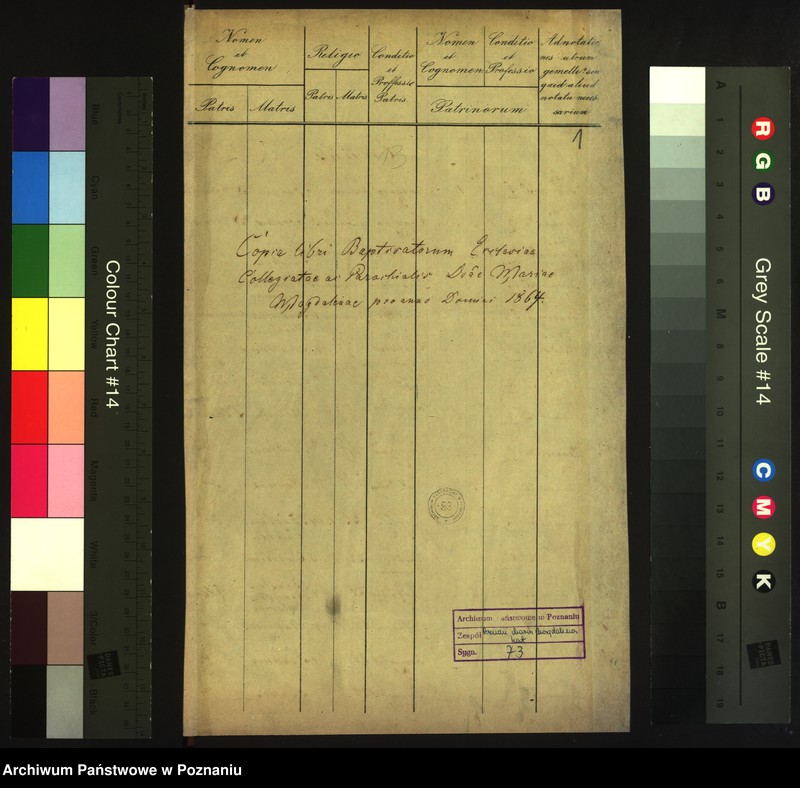 Nomen
et
Cognomen
Patris
Matris
Religio
Patris Matris
Conditio
et
Proffessio
Patris
Nomen
et
Cognomen
Conditio
et
Professio
Patrinorum
Adnotatio
nes utrum
gemelle? seu
quid aliud
notatu neces
sarium
1
13
Copia libri Baptisatorum Ecclesiae
Collegiatae ac Parochialis Scae Mariae
Magdalenae pro anno Domini 1864.
Archiwum Państwowe w Poznaniu
Zespół
Sygn. 73
Colour Chart #14
Blue
Cyan
Green
Yellow
Red
Magenta
White
3/Color
Black
Grey Scale #14
R
G
B
C
M
Y
K
A
1
2
3
4
5
6
M
8
9
10
11
12
13
14
15
B
17
18
19
Archiwum Państwowe w Poznaniu